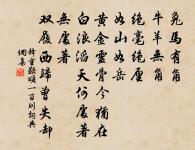 兔馬有角
牛羊無角
絕毫絕厘
如山如岳
黃金靈骨今猶在
白浪滔天何處著
無處著
雙履西歸曾失却
釋重顯頌一百則詞典
網集